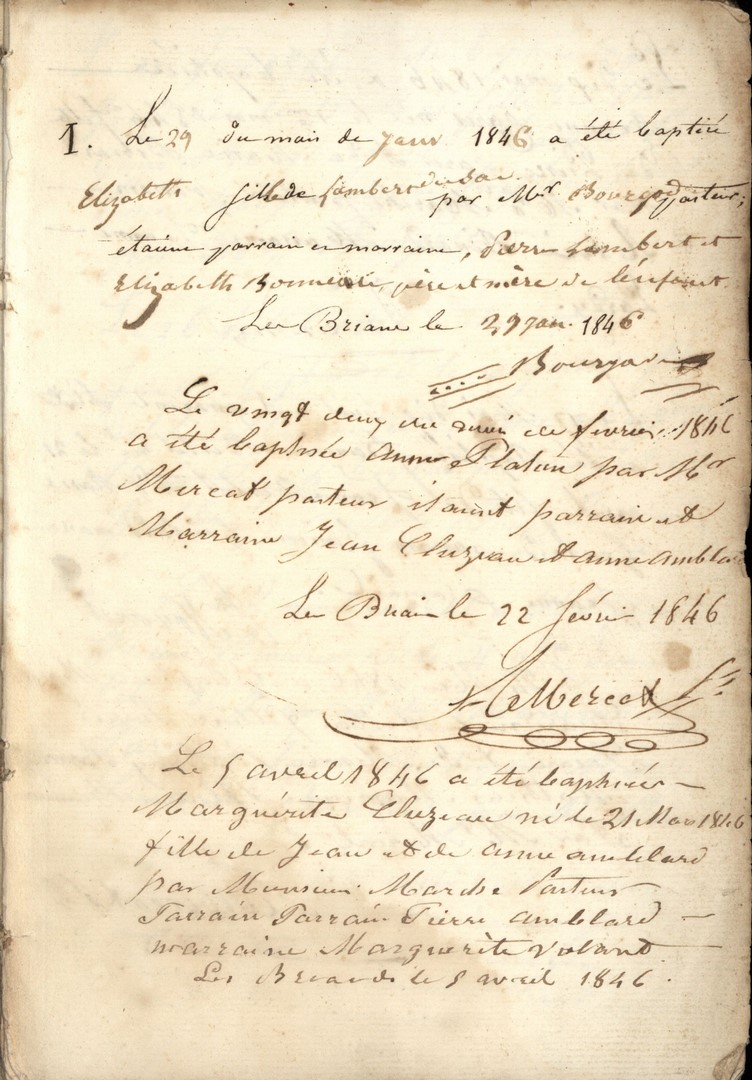 1. Le 29 du mois de Janv 1846 a été baptisé
Elizabeth fille de Lambert du Bac
par Mr Bourgade pasteur;
étaient parrain et marraine, Pierre Lambert et
Elizabeth père et mère de l'enfant.
Les Briau le 29 Jan. 1846
Bourgade
Le vingt deux du moi de fevrier 1846
a été baptisée Anne Platon par Mr
Mercat pasteur étaient parrain et
Marraine Jean Cluzeau et anne ambla
Les Briau le 22 févri 1846
Mercat
Le 5 avril 1846 a été baptisée
Marguérite Cluzeau né le 21 Mars 1846
fille de Jean et de anne amblard
par Monsieur Pasteur
Parrain Parrain Pierre amblard
marraine Marguerite Volant
Les Briands le 5 avril 1846.